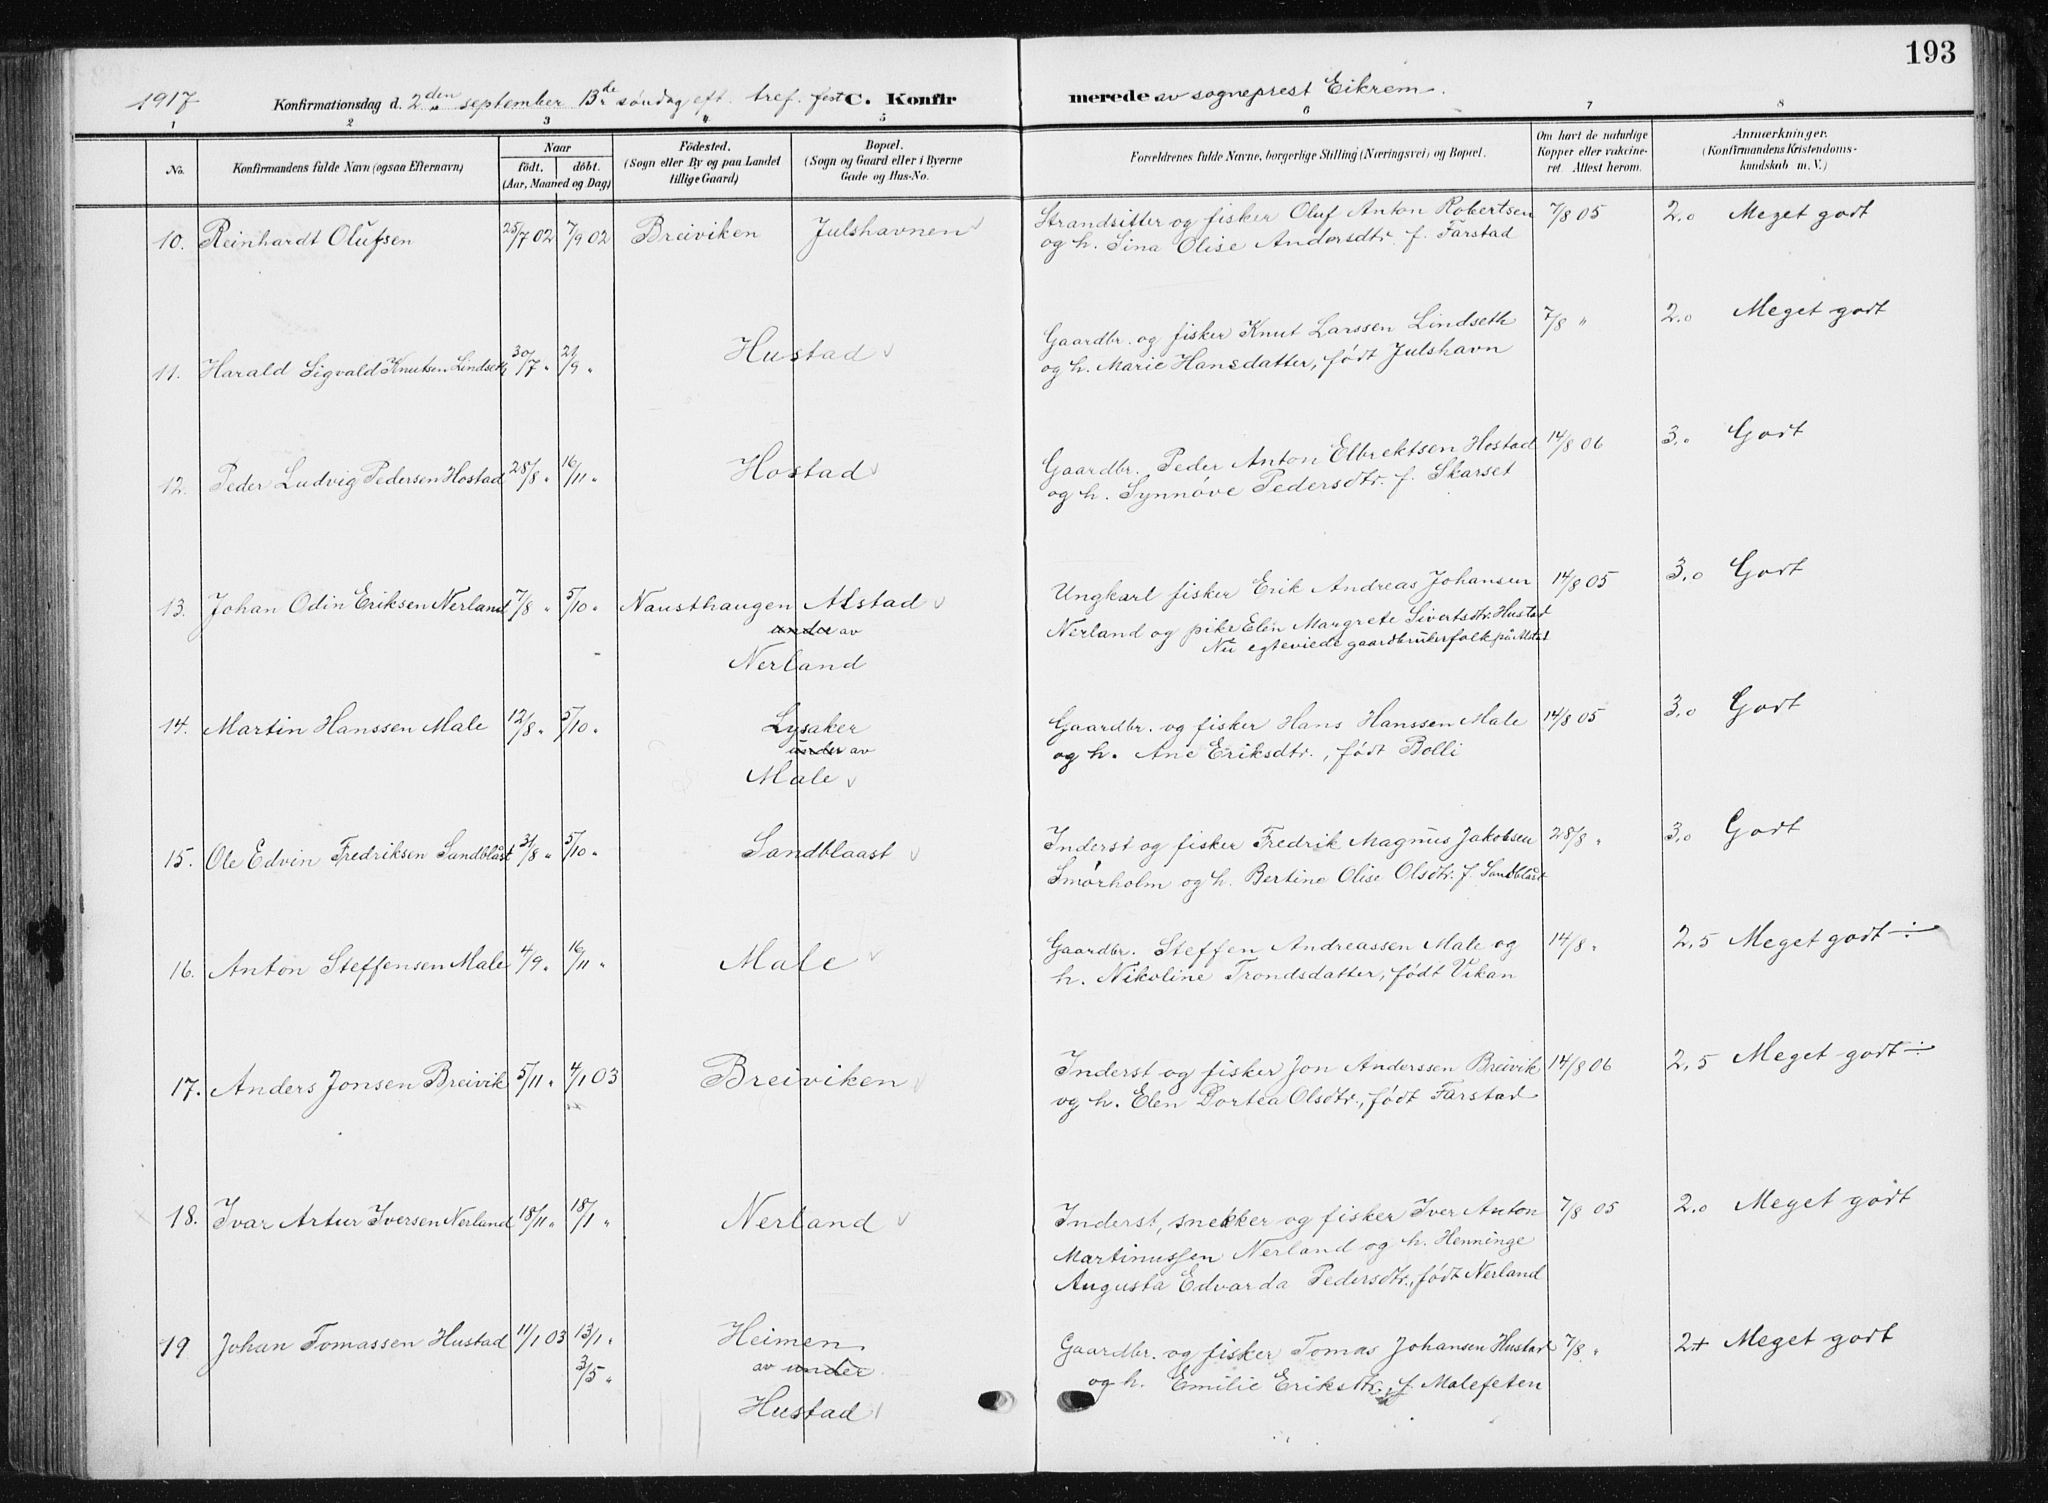 193
1917 Konfirmationsdag d. 2den september 13de søndag eft. tref. fest C. Konfirmerede av sogneprest Eikrem.
1 2 3 4 5 6 7 8
No. Konfirmandens fulde Navn (ogsaa Efternavn) Naar født. døbt. (Aar, Maaned og Dag) Fødested. (Sogn eller By og paa Landet tillige Gaard) Bopæl. (Sogn og Gaard eller i Byerne Gade og Hus-No. Forældrenes fulde Navne, borgerlige Stilling (Næringsvei) og Bopæl. Om havt de naturlige Kopper eller vakcineret. Attest herom. Anmærkninger. (Konfirmandens Kristendomskundskab m. V.)
10. Reinhardt Olufsen 25/7 02 7/9 02 Breiviken Julshavnen Strandsitter og fisker Oluf Anton Robertsen 7/8 05 2.0 Meget godt
og h. Sina Olise Andersdtr. f. Farstad
11. Harald Sigvald Knutsen Lindseth 30/7 " 21/9 " Hustad Gaardbr. og fisker Knut Larssen Lindseth 7/8 " 2.0 Meget godt
og h. Marie Hansdatter, født Julshavn
12. Peder Ludvig Pedersen Hostad 28/8 " 16/11 " Hostad Gaardbr. Peder Anton Elbrektsen Hostad 14/8 06 3.0 Godt
og h. Synnøve Pedersdtr. f. Skarset
13. Johan Odin Eriksen Nerland 7/8 " 5/10 " Nausthaugen Alstad Ungkarl fisker Erik Andreas Johansen 14/8 05 3.0 Godt
under av Nerland og pike Elen Margrete Sivertsdtr. Hustad
Nerland Nu egteviede gaardbrukerfolk på Alstad
14. Martin Hanssen Male 12/8 " 5/10 " Lysaker Gaardbr. og fisker Hans Hanssen Male 14/8 05 3.0 Godt
under av og h. Ane Eriksdtr., født Bolli
Male
15. Ole Edvin Fredriksen Sandblåst 31/8 " 5/10 " Sandblaast Inderst og fisker Fredrik Magnus Jakobsen 28/8 " 3.0 Godt
Smørholm og h. Bertine Olise Olsdtr. f. Sandblåst
16. Anton Steffensen Male 4/9 " 16/11 " Male Gaardbr. Steffen Andreassen Male og 14/8 " 2,5 Meget godt ÷
h. Nikoline Trondsdatter, født Vikan
17. Anders Jonsen Breivik 5/11 " 4/1 03 Breiviken Inderst og fisker Jon Anderssen Breivik 14/8 06 2,5 Meget godt ÷
og h. Elen Dortea Olsdtr., født Farstad
18. Ivar Artur Iversen Nerland 18/11 " 18/1 " Nerland Inderst, snekker og fisker Iver Anton 7/8 05 2.0 Meget godt
Martinussen Nerland og h. Henninge
Augusta Edvarda Pedersdtr., født Nerland
19 Johan Tomassen Hustad 11/1 03 13/1 " Heimen Gaardbr. og fisker Tomas Johansen Hustad 7/8 " 2+ Meget godt
3/5 " av under og h. Emilie Eriksdtr. f. Malefeten
Hustad